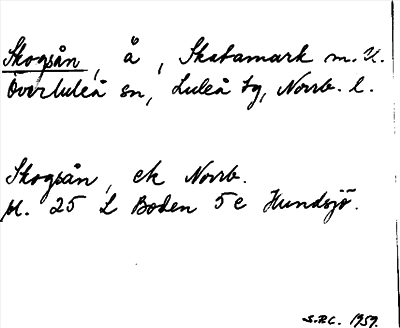 Skogsån, å, Skatamark m. U.
Överluleå sn, Luleå tg, Norrb. l.
Skogsån, ek Norrb.
bl. 25 L Boden 5 c Hundsjö.
S.R.C. 1959.